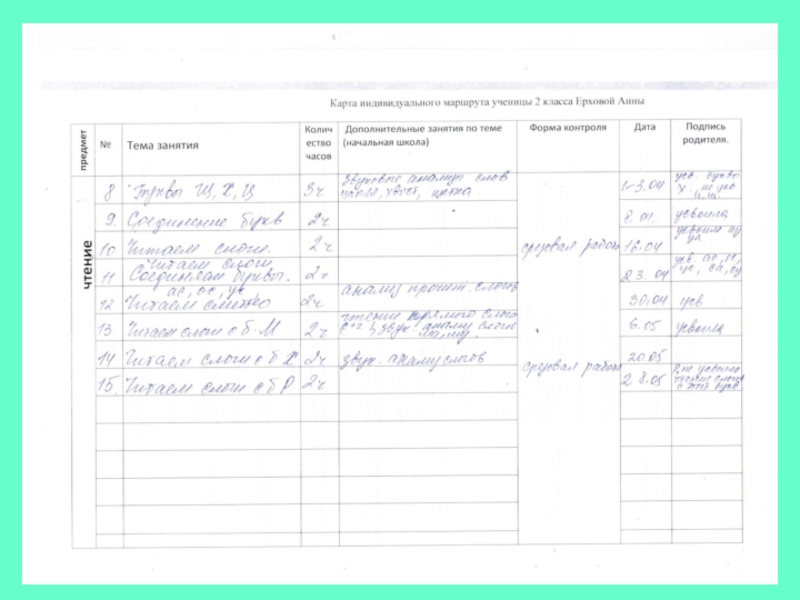 Карта индивидуального маршрута ученицы 2 класса Ерховой Анны
предмет
№
Тема занятия
Количество часов
Дополнительные занятия по теме (начальная школа)
Форма контроля
Дата
Подпись родителя.
чтение
8 Буквы Щ, Х, Ц 3ч Звуковые анализы слов хвост, 1-3.04 усв. буквы Х
9. Соединение букв 2ч 8.04 усвоила
10 Читаем слоги. 2ч срезовая работа 16.04
Читаем слоги
11 Соединяем буквы. 2ч 23.04
ас, ос, ус
12 Читаем 2ч анализ слогов 30.04 усв
13. Читаем слоги с б. М 2ч чтение прямого слога звук. анализ слогов 6.05 усвоила
14 Читаем слоги с б Х 2ч звук. анализ слогов срезовая работа 20.05
15. Читаем слоги с б Р 2ч 28.05 не усвоила чтение слогов с этой букв